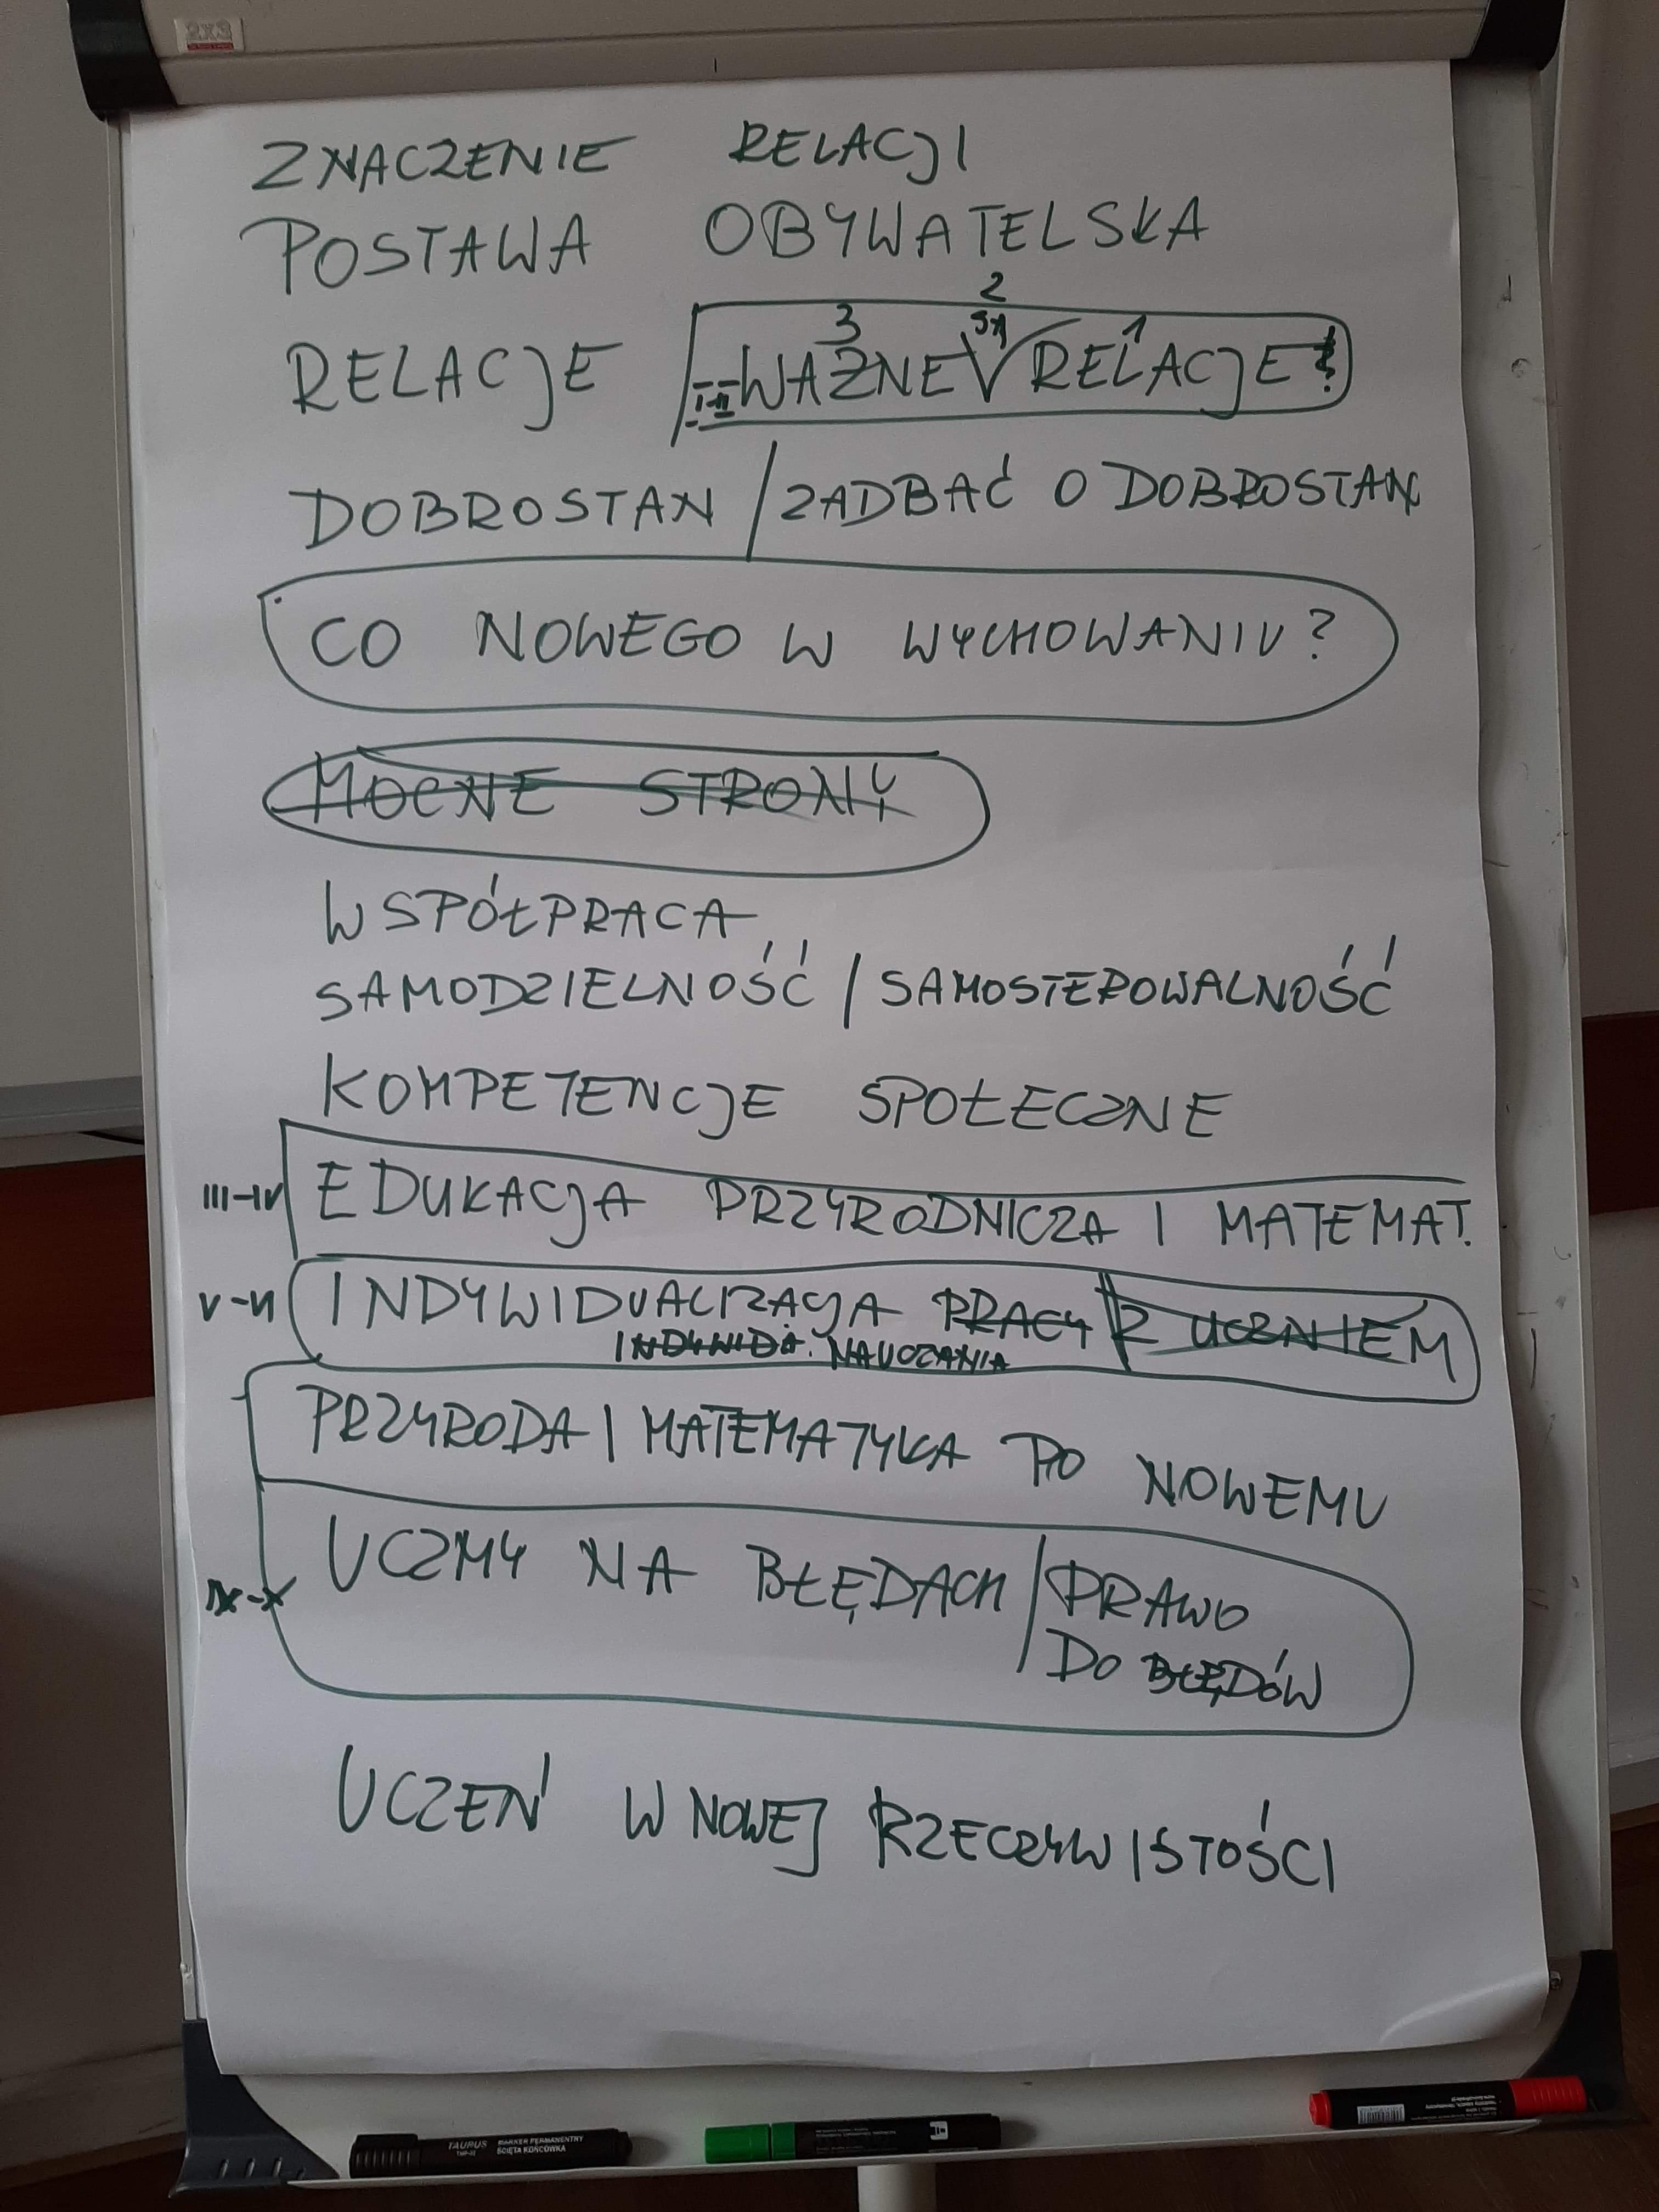 2X3
ZNACZENIE RELACJI
POSTAWA OBYWATELSKA
2
3 SĄ 1
RELACJE WAŻNE RELACJE!
I-II
DOBROSTAN / ZADBAĆ O DOBROSTAN
CO NOWEGO W WYCHOWANIU?
MOCNE STRONY
WSPÓŁPRACA
SAMODZIELNOŚĆ / SAMOSTEROWALNOŚĆ
KOMPETENCJE SPOŁECZNE
III-IV EDUKACJA PRZYRODNICZA I MATEMAT.
V-VI INDYWIDUALIZACJA PRACY Z UCZNIEM
INDYWID. NAUCZANIA
PRZYRODA I MATEMATYKA PO NOWEMU
UCZMY NA BŁĘDACH / PRAWO
IX-X
DO BŁĘDÓW
UCZEŃ W NOWEJ RZECZYWISTOŚCI
TAURUS MARKER PERMANENTNY
ŚCIĘTA KOŃCÓWKA